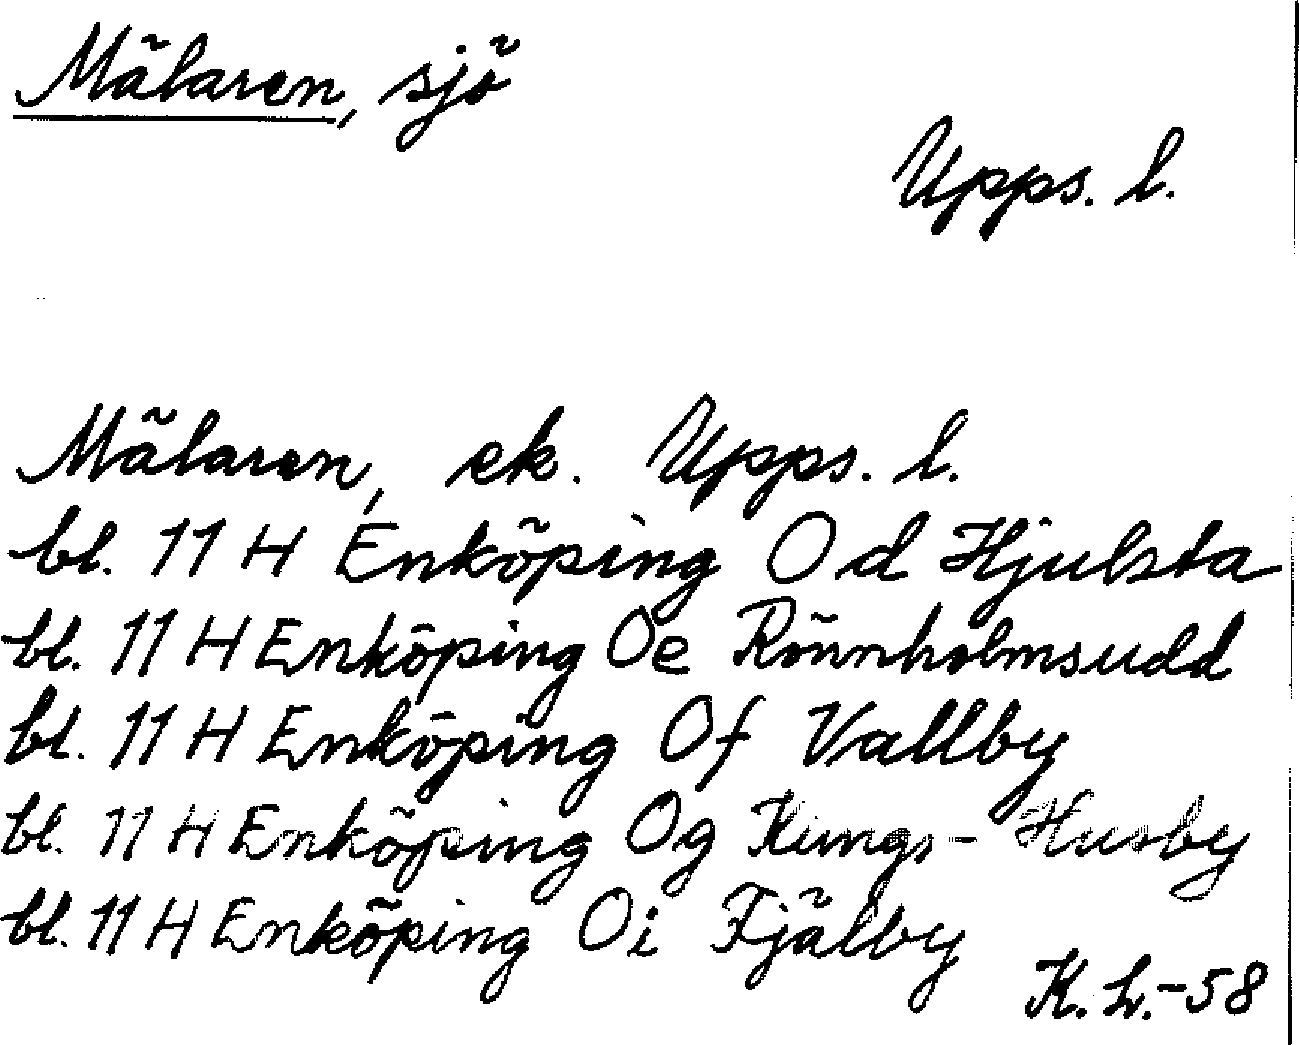 Mälaren, sjö
Upps. l.
Mälaren, ek. Upps. l.
bl. 11 H Enköping Od Hjulsta
bl. 11 H Enköping Oe Rönnholmsudd
bl. 11 H Enköping Of Vallby
bl. 11 H Enköping Og Kungs-Husby
bl. 11 H Enköping Oi Fjälby
K. L.-58